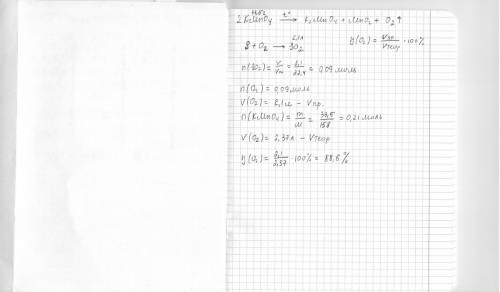 t°
K₂MnO₄ → K₂MnO₄ + MnO₂ + O₂↑
2,1л
S + O₂ → SO₂
η(O₂) = Vпр / Vтеор · 100%
n(SO₂) = V/Vm = 2,1/22,4 = 0,09 моль
n(O₂) = 0,09 моль
V(O₂) = 2,1 л – Vпр.
n(K₂MnO₄) = m/M = 33,5/158 = 0,21 моль
V(O₂) = 2,37 л – Vтеор
η(O₂) = 2,1/2,37 · 100% = 88,6 %